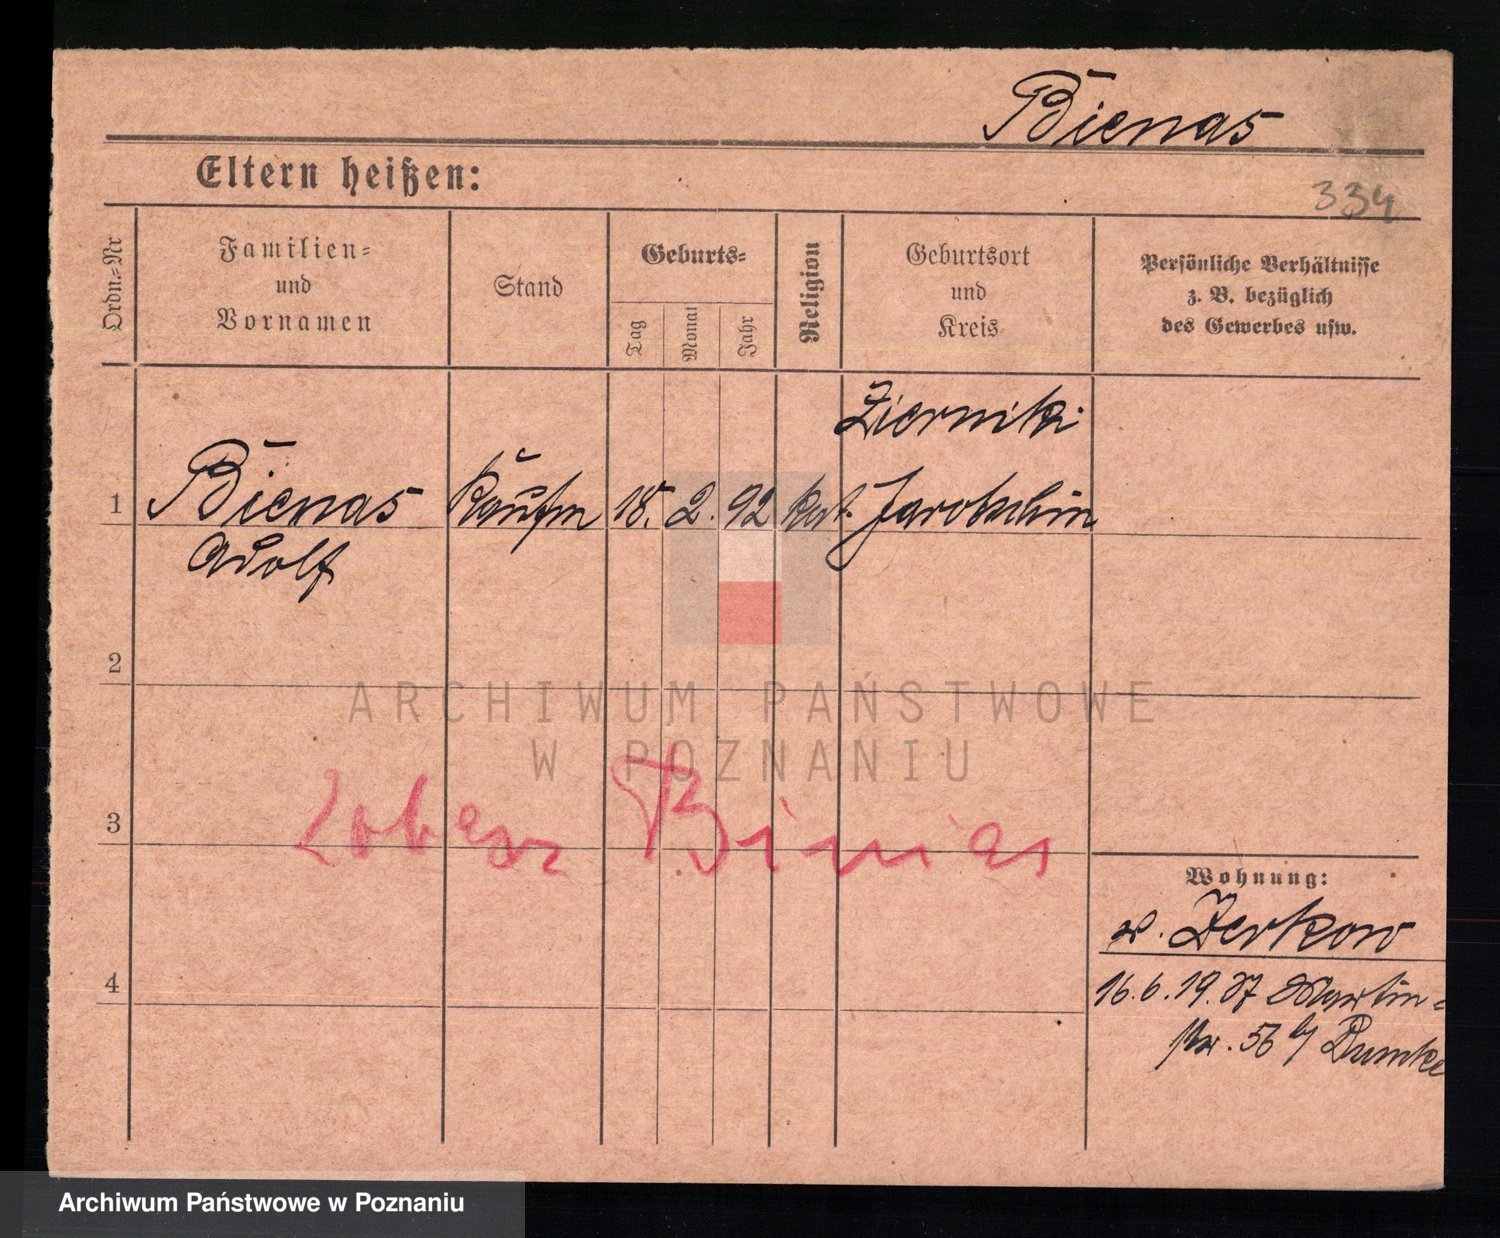 Bienas
Eltern heißen:
334
Ordn.=Nr
Familien=
und
Vornamen
Stand
Geburts=
Tag
Monat
Jahr
Religion
Geburtsort
und
Kreis
Persönliche Verhältnisse
z. B. bezüglich
des Gewerbes usw.
Zierniki
1 Bienas Kaufm 18. 2. 92 kat. Jarotschin
Adolf
2
ARCHIWUM PAŃSTWOWE
W POZNANIU
Zobacz Binias
3
Wohnung:
v. Zerkow
4
16.6.19. 37 Martin=
str. 56 b/ Dumke
Archiwum Państwowe w Poznaniu